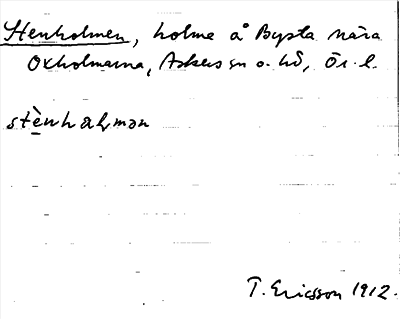 Stenholmen, holme å Bysta nära
Oxholmarna, Askers sn o. hd, Ör. l.
stènhaɫmən
T. Ericsson 1912.